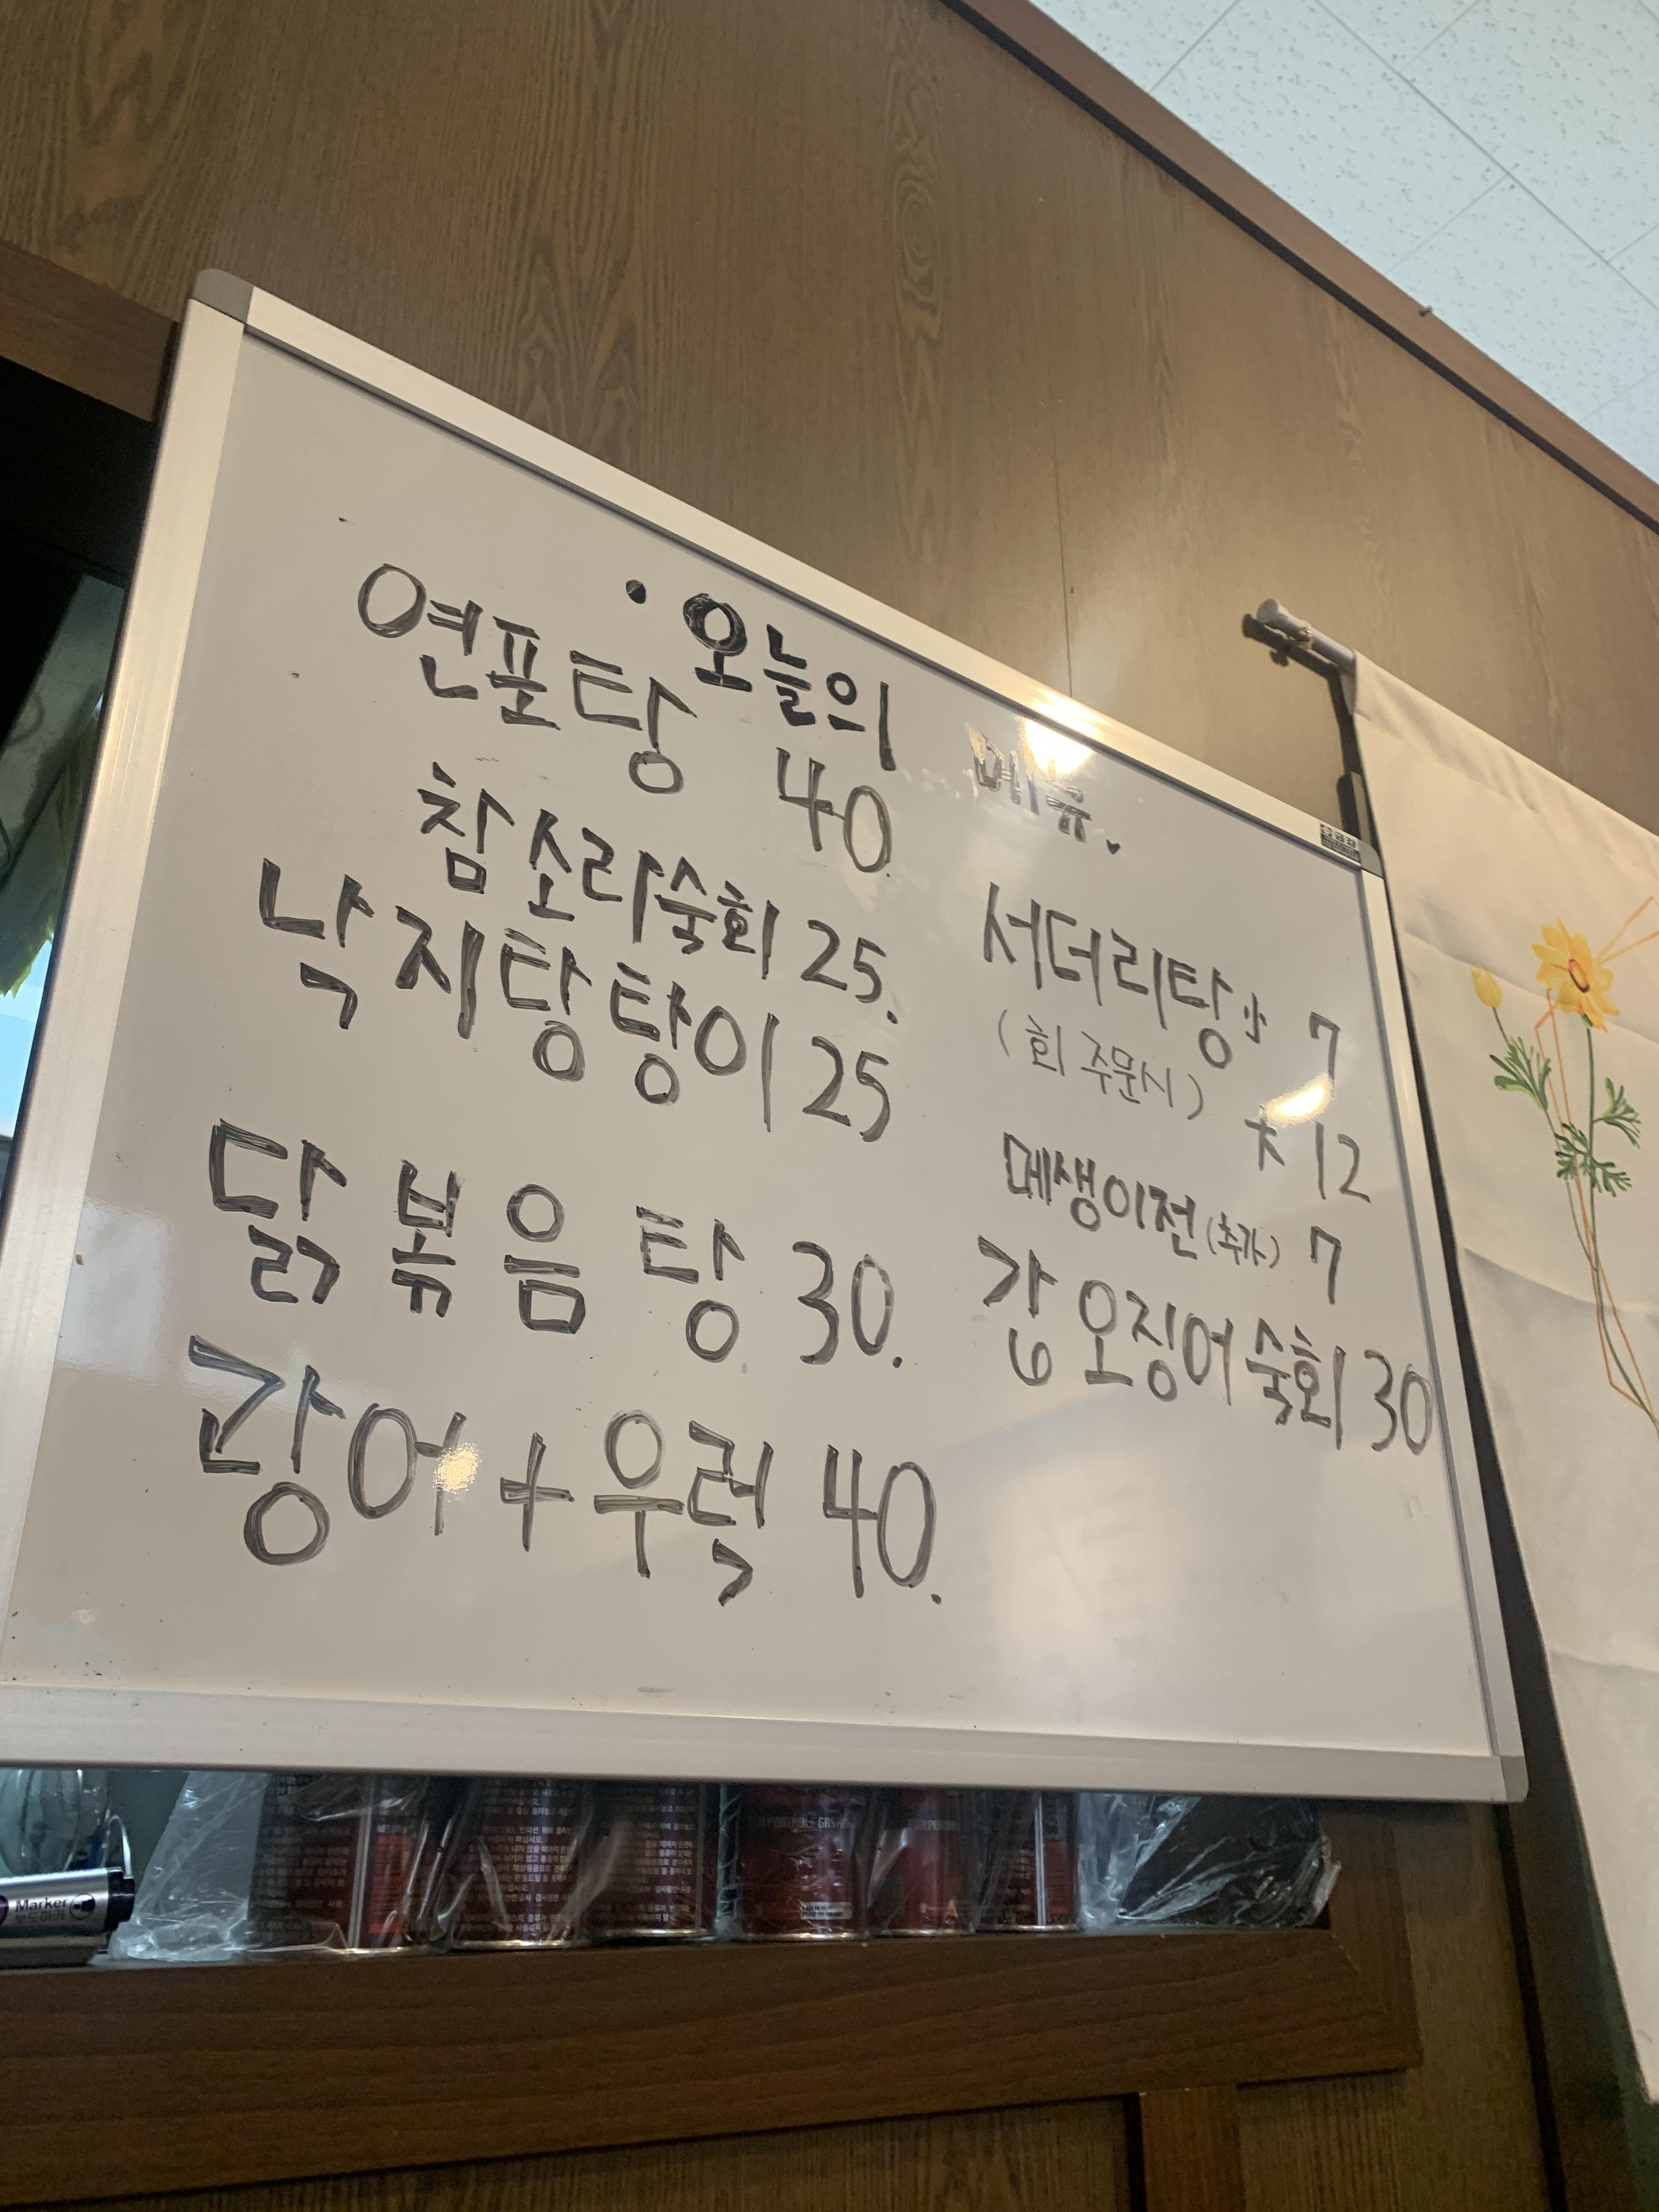 · 오늘의 메뉴.
연포탕 40.
참소라숙회 25.
낙지탕탕이 25
닭볶음탕 30.
광어+우럭 40.
서더리탕 小 7
(회 주문시) 大 12
메생이전(추가) 7
갑오징어숙회 30
Marker
보드마카